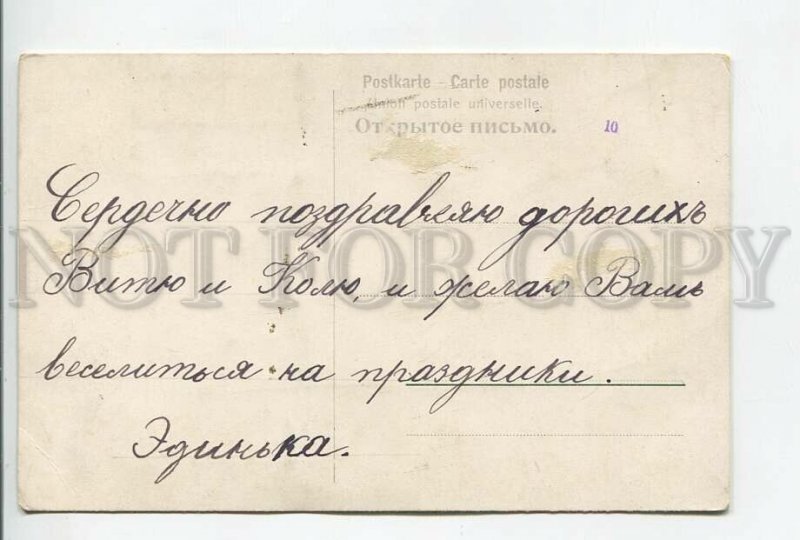 Postkarte - Carte postale
Union postale universelle.
Открытое письмо.
10
Сердечно поздравляю дорогихъ
Витю и Колю, и желаю Вамъ
веселиться на праздники.
Эдинька.
NOT FOR COPY